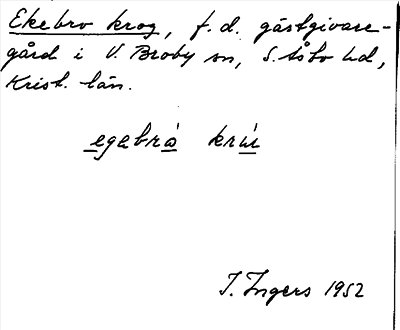 Ekebro krog, f.d. gästgivare-
gård i V. Broby sn, S. Åsbo hd,
Krist. län.
egabrá krú
I. Ingers 1952